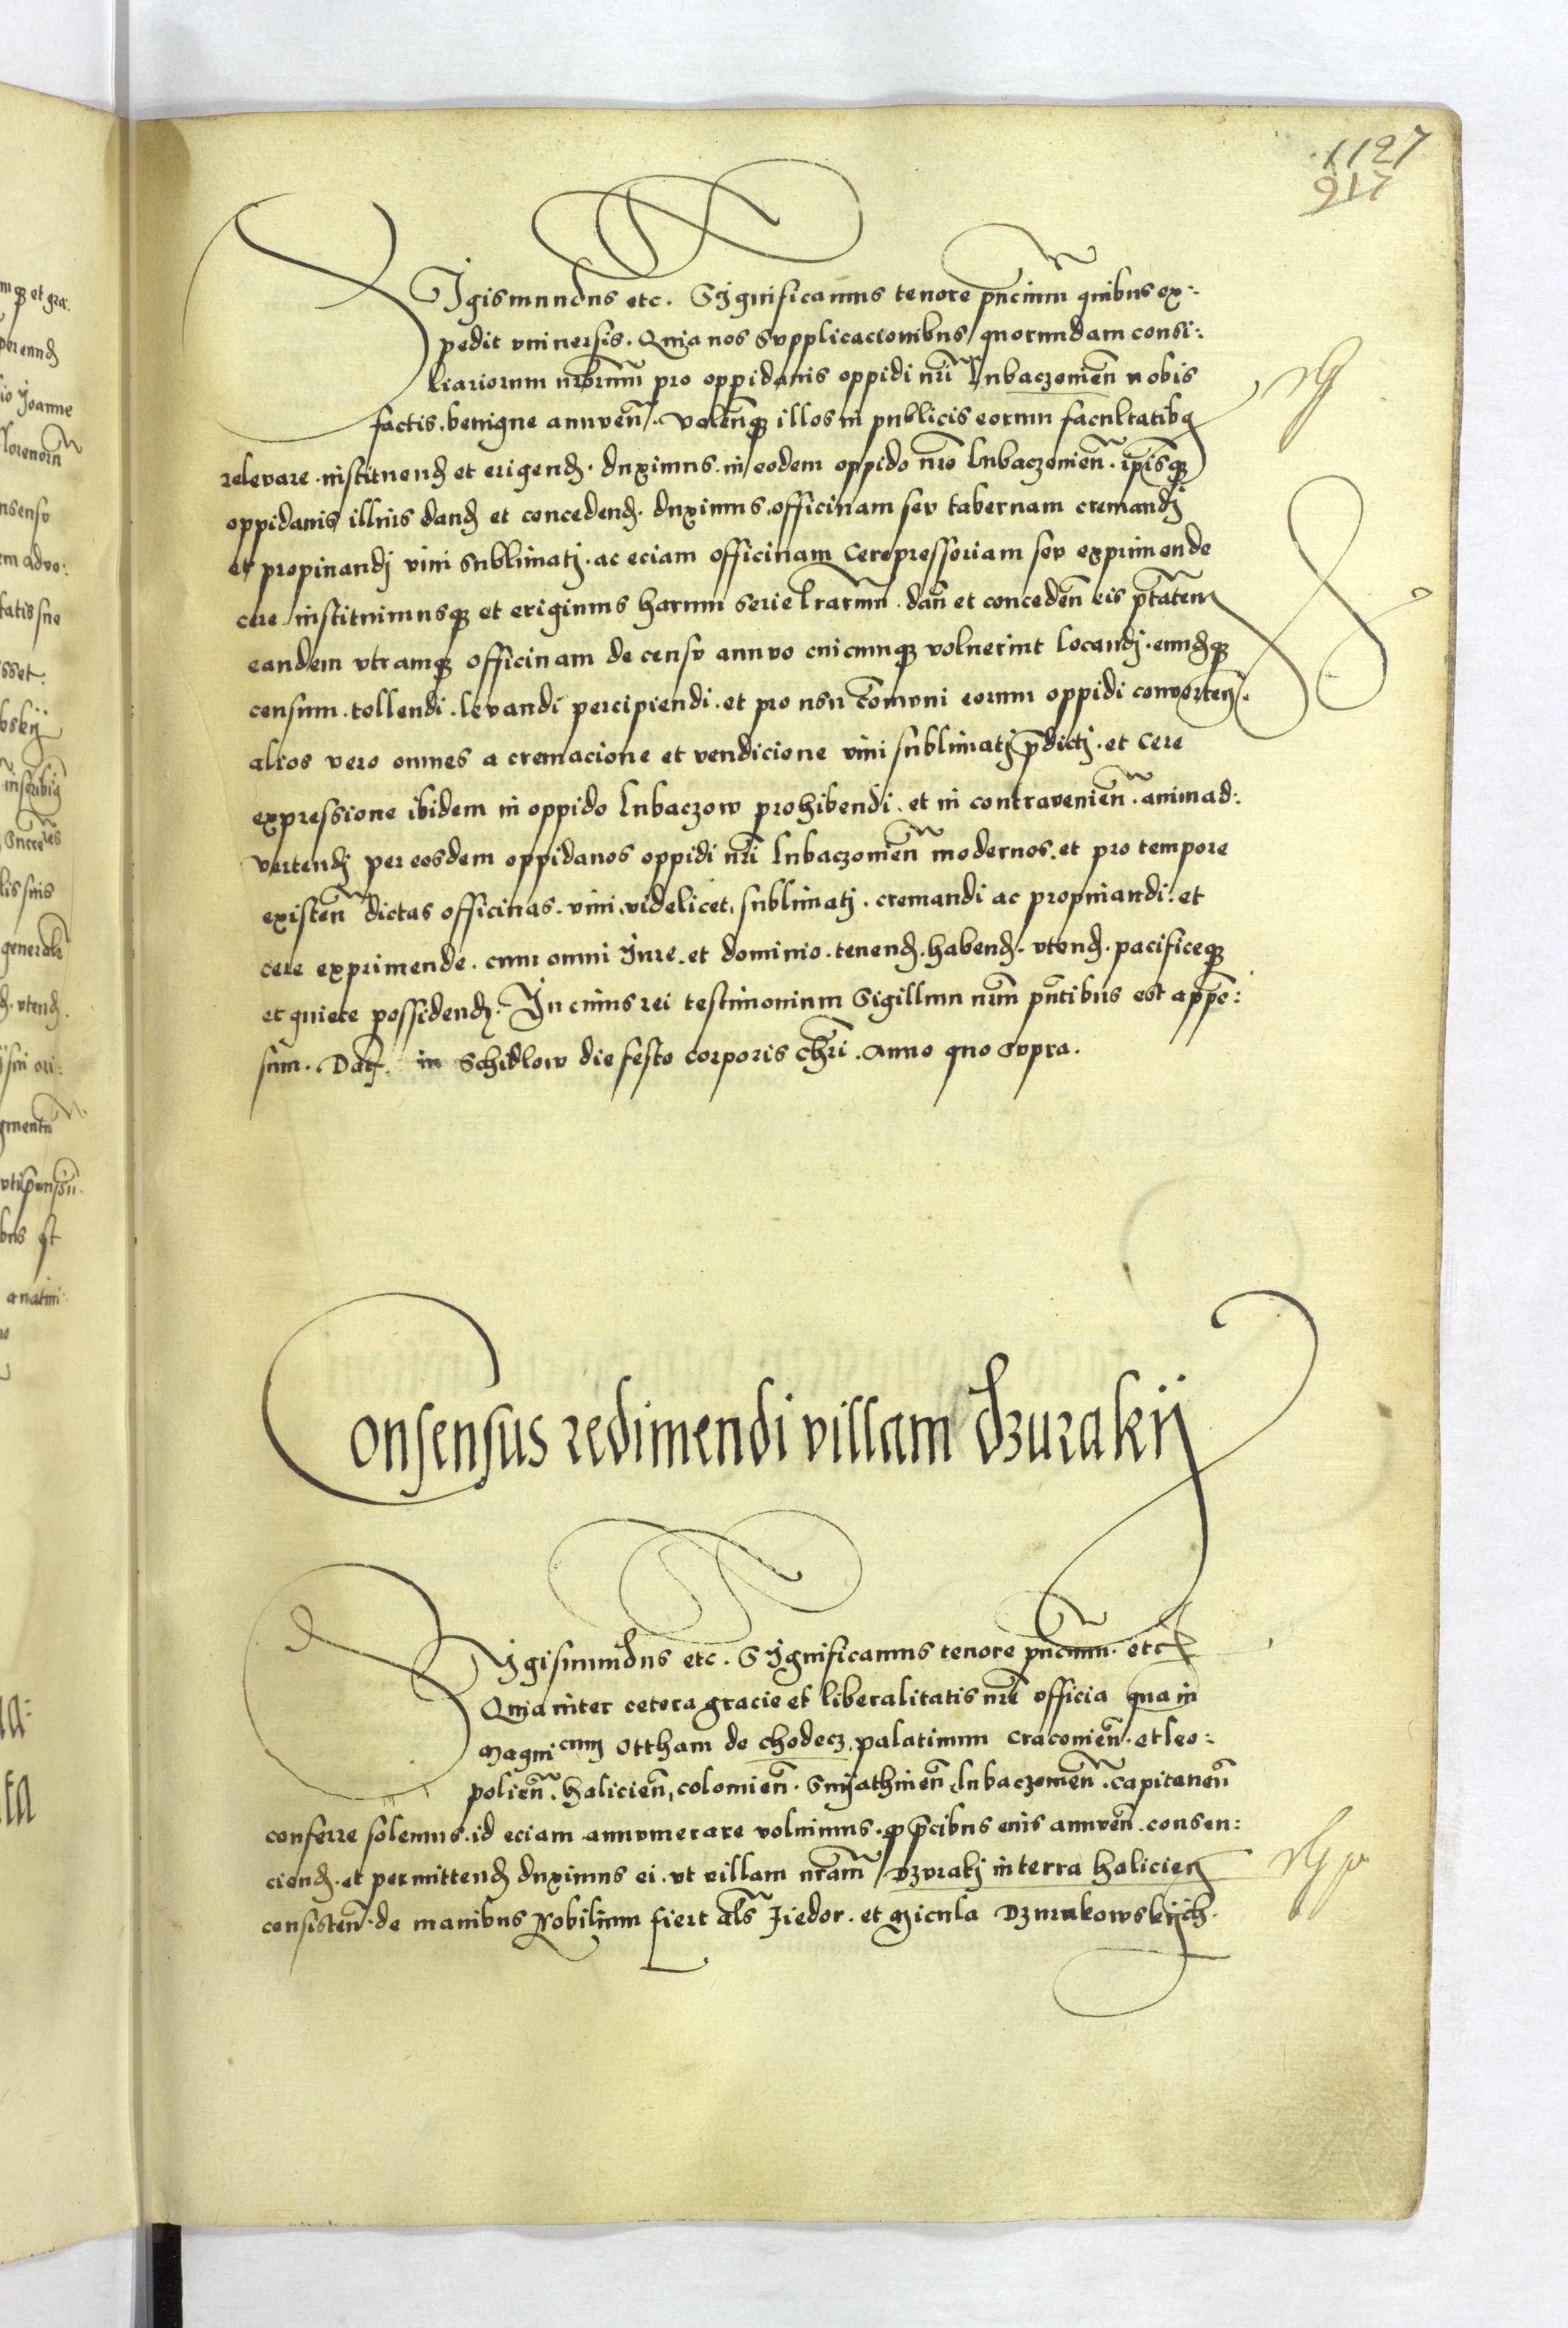 1127
917
Sigismundus etc. Significamus tenore pñcium quibus ex:
pedit universis. Quia nos supplicacionibus quorundam consi:
liariorum nr̃orum pro oppidanis oppidi nr̃i Lubaczowieñ nobis
factis. benigne annueñ. voleñqꝫ illos in publicis eorum facultatibꝫ
relevare. instituendꝫ et erigendꝫ. duximus. in eodem oppido nr̃o Lubaczowieñ. ip̃isqꝫ
oppidanis illius dandꝫ et concedendꝫ. duximus. officinam seu tabernam cremandj
et propinandj vini sublimatj. ac eciam officinam Cerepressoriam seu exprimende
cere. instituimusqꝫ et erigimus harum serie lr̃arum. dañ et concedeñ eis pt̃atem
eandem utramqꝫ officinam de censu annuo cuicunqꝫ voluerint locandj. eundqꝫ
censum. tollendi. levandi percipiendi. et pro usu com̃uni eorum oppidi converteñ.
alios vero omnes a cremacione et vendicione vini sublimatj p̃dictj. et Cere
expressione ibidem in oppido Lubaczow prohibendi. et in contravenieñ. animad:
vertendj per eosdem oppidanos oppidi nr̃i Lubaczowieñ modernos. et pro tempore
existeñ dictas officinas. vini. videlicet, sublimatj. cremandi ac propinandi. et
cere exprimende. cum omni Jure. et dominio. tenendꝫ. habendꝫ. utendꝫ. pacificeqꝫ
et quiete possidendꝫ. In cuius rei testimonium Sigillum nr̃m pñtibus est appe:
sum. Datꝭ. in Schidlow die festo corporis chr̃i. Anno quo supra.
Consensus redimendi villam dzurakij
Sigismundus etc. Significamus tenore pñcium. etc
Quia inter cetera gracie et liberalitatis nr̃e officia que in
Magnicum Ottham de chodecz, palatinum Cracovieñ. et leo:
polieñ. halicieñ, colomieñ. Snyathineñ. Lubaczowieñ. Capitaneũ
conferre solemus. id eciam annumerare voluimus. qꝫ p̃cibus eius annueñ. consen:
ciendꝫ. et permittendꝫ duximus ei. ut villam nr̃am Dzuratj in terra halicieñ
consisteñ. de manibus Nobilium fiert al̃s Jiedor. et Micula Dzurakowskijch.